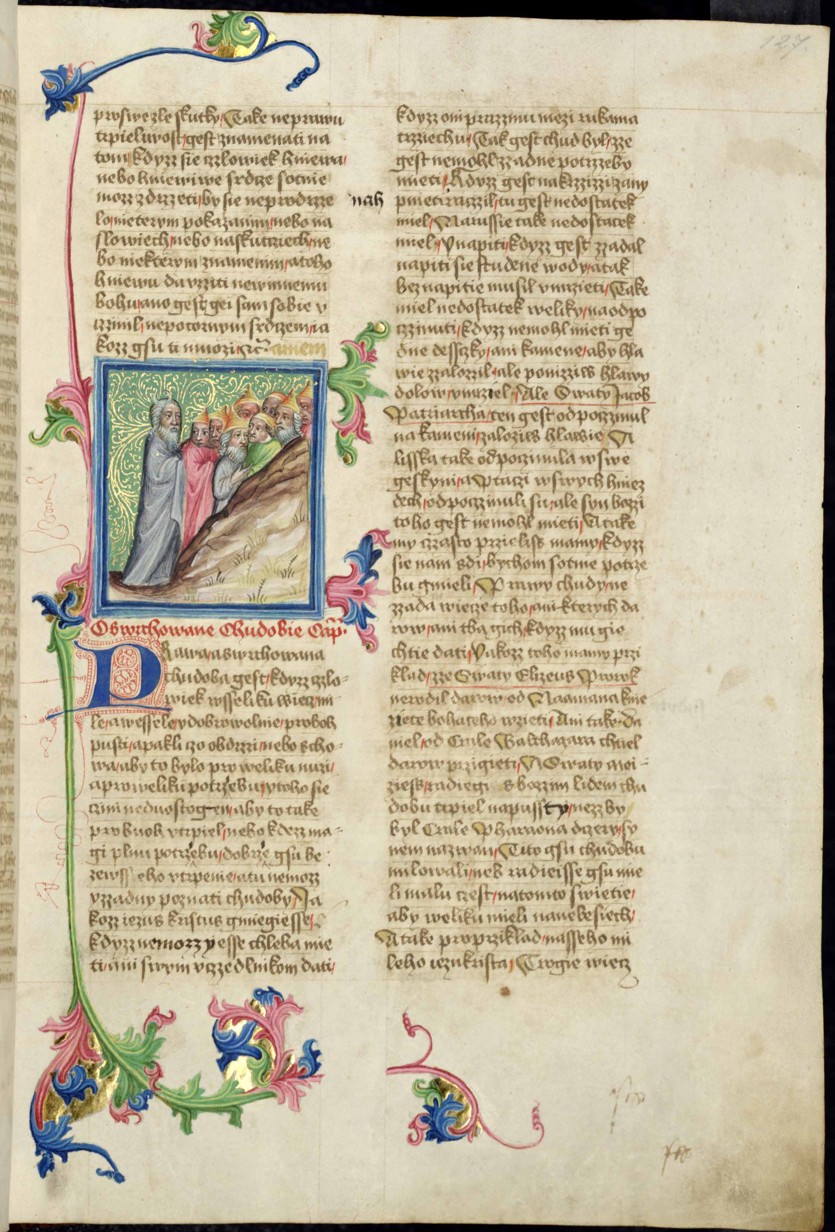 127
proswe zle skutky, Take neprawu
trpieliwost gest znamenati na
tom, kdyzz sie czlowiek hniewa,
nebo hniewiwe srdcze sotnie
mozz zdrzzeti, by sie neprodrzze
lo niekterym pokazanim, nebo na
slowiech, nebo na skutcziech, ne
bo niekterym znamenim, a toho
hniewu da vrziti newinnemu
bohu, ano gest gei sam sobie v
czinil, nepokornym srdczem, ia
kozz gsu ti mnozi, etc. amen
O swrchowane Chudobie Cap.
Prawa a swrchowana
chudoba gest, kdyzz czlo-
wiek wsseliku wiecz mi
le a wessele y dobrowolnie pro boh
pusti, a pakli czo obdrzi, nebo scho-
wa, aby to bylo pro weliku nuzi,
a pro weliku potrzebu, y toho sie
czini nedostogen, aby to take
pro buoh vtrpiel, nebo kdezz ma-
gi plnu potrzebu, dobrzie gsu be
zewsseho vtrpenie, a tu nemozz
vzzadny poznati chudoby, Ja
kozz iezus kristus gmiegiesse,
kdyzz nemozzyesse chleba mie
ti, ani swym vczedlnikom dati,
nah
kdyzz oni przizzimu mezi rukama
trzziechu, Tak gest chud byl, zze
gest nemohl zzadne potrzzeby
mieti, A dyzz gest na krzizzi zany
pnieti raczil, tu gest nedostatek
miel, Na russie take nedostatek
miel, V napiti, kdyzz gest zzadal
napiti sie studene wody, a tak
bez napitie musil vmrzieti, Take
miel nedostatek weliky, na odpo
czinuti, kdyzz nemohl mieti ge
dne dessczky, ani kamene, aby hla
wie zzalozzil, ale ponizziw hlawy
dolow, vmrziel, Ale Swaty Jacob
Patriarcha, ten gest odpoczinul
na kameni, zalozziw hlawsie, A
lisska take odpoczinula w swe
geskyni, a Ptaczi w swych hniez
dech, odpoczinuli su, ale syn bozzi
toho gest nemohl mieti, A take
my czasto przielis mamy, kdyzz
sie nam zdi, bychom sotnie potrze
bu gmieli, Prawy chudy ne
zzada wiecze toho, ani kterych da
row, ani tba gich, kdyzz mu gie
chtie dati, Jakozz toho mamy przi
klad, zze Swaty Elizeus Prorok
nerodil darow od Naamana knie
ziete bohateho wzieti, Ani take Da
niel, od Crale Balthazara chtiel
darow przigieti, A Swaty moi-
ziess, radiegi s bozzim lidem chu
dobu trpiel na pussty, nezz by
byl Crale Pharaona dczery, sy
nem nazwan, Tito gsu chudobu
milowali, neb radieisse gsu mie
li malu czest, na tomto swietie,
aby weliku mieli na nebesiech,
A take pro przziklad nasseho mi
leho iezu krista, Trogie wiecz